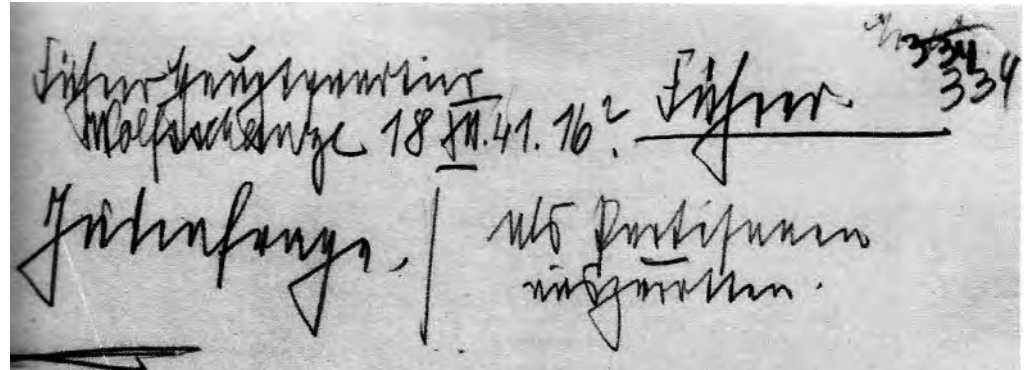 Führerhauptquartier
Wolfsschanze 18 XII. 41. 16? Führer
334
334
Judenfrage. | als Partisanen
auszurotten.